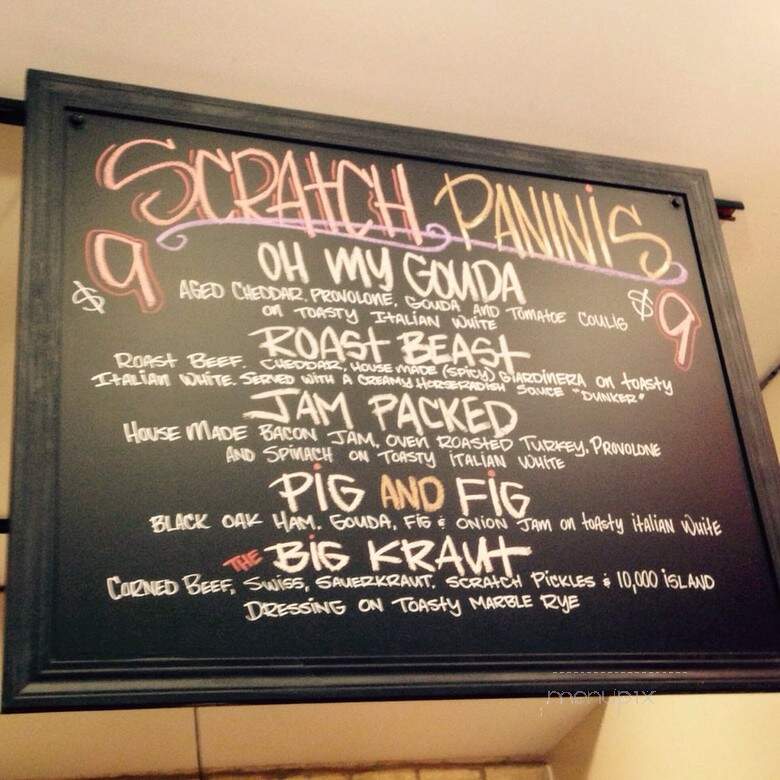 SCRATCH PANINIS
$9 $9
OH MY GOUDA
AGED CHEDDAR, PROVOLONE, GOUDA AND TOMATOE COULIS
ON TOASTY ITALIAN WHITE
ROAST BEAST
ROAST BEEF. CHEDDAR, HOUSE MADE (SPICY) GIARDINERA ON TOASTY
ITALIAN WHITE. SERVED WITH A CREAMY HORSERADISH SAUCE "DUNKER"
JAM PACKED
HOUSE MADE BACON JAM, OVEN ROASTED TURKEY, PROVOLONE
AND SPINACH ON TOASTY ITALIAN WHITE
PIG AND FIG
BLACK OAK HAM. GOUDA, FIG & ONION JAM ON TOASTY ITALIAN WHITE
THE BIG KRAUT
CORNED BEEF, SWISS, SAUERKRAUT, SCRATCH PICKLES & 10,000 ISLAND
DRESSING ON TOASTY MARBLE RYE
menupix